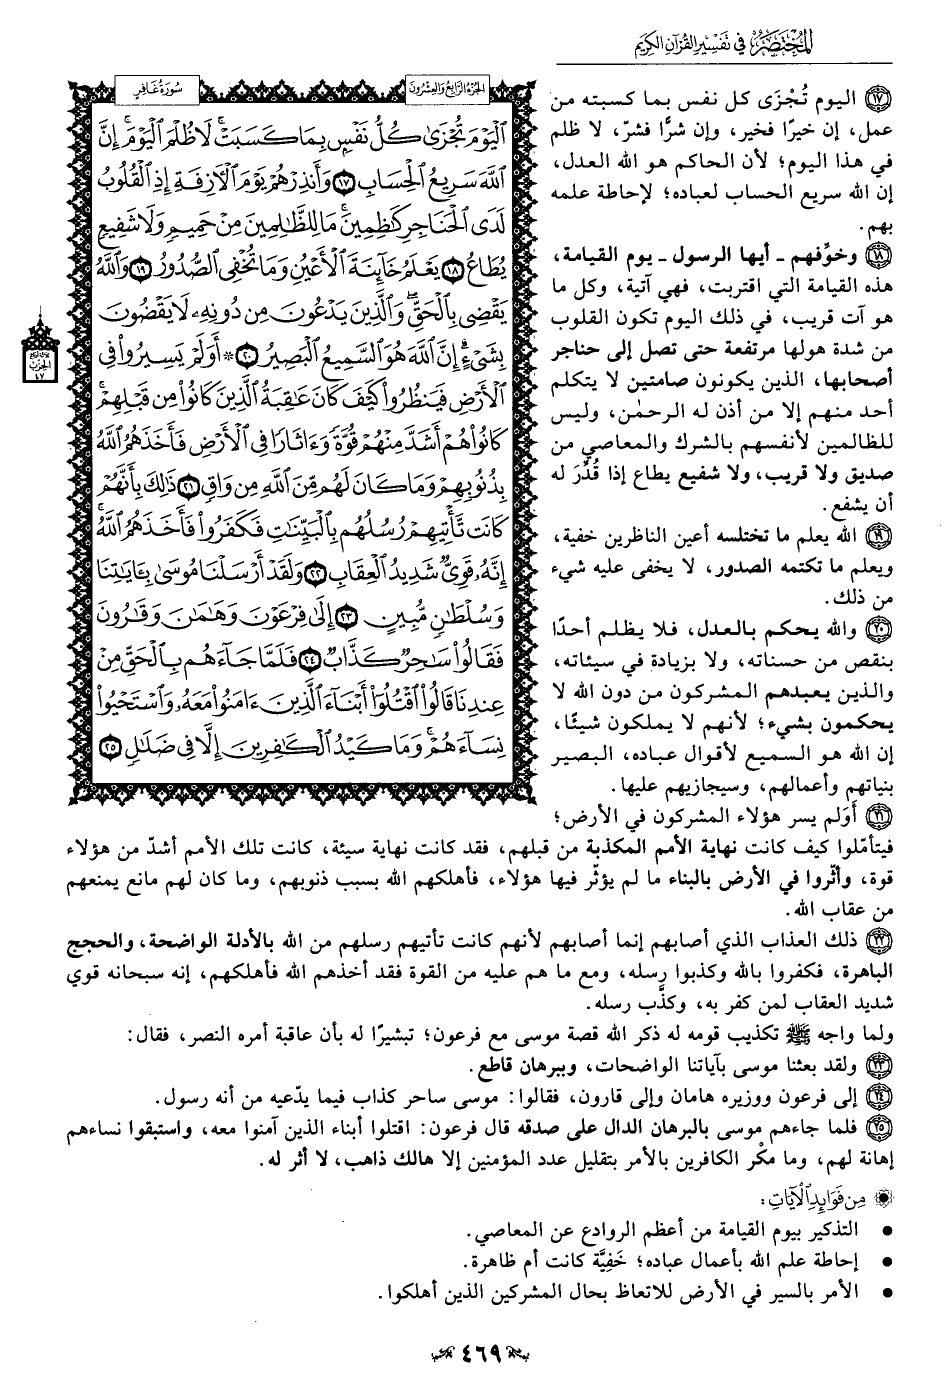 المختصر في تفسير القرآن الكريم
الجزء الرابع والعشرون
سورة غافر
ٱلۡيَوۡمَ تُجۡزَىٰ كُلُّ نَفۡسِۭ بِمَا كَسَبَتۡۚ لَا ظُلۡمَ ٱلۡيَوۡمَۚ إِنَّ
ٱللَّهَ سَرِيعُ ٱلۡحِسَابِ ١٧ وَأَنذِرۡهُمۡ يَوۡمَ ٱلۡأٓزِفَةِ إِذِ ٱلۡقُلُوبُ
لَدَى ٱلۡحَنَاجِرِ كَٰظِمِينَۚ مَا لِلظَّٰلِمِينَ مِنۡ حَمِيمٖ وَلَا شَفِيعٖ
يُطَاعُ ١٨ يَعۡلَمُ خَآئِنَةَ ٱلۡأَعۡيُنِ وَمَا تُخۡفِي ٱلصُّدُورُ ١٩ وَٱللَّهُ
يَقۡضِي بِٱلۡحَقِّۖ وَٱلَّذِينَ يَدۡعُونَ مِن دُونِهِۦ لَا يَقۡضُونَ
بِشَيۡءٍۗ إِنَّ ٱللَّهَ هُوَ ٱلسَّمِيعُ ٱلۡبَصِيرُ ٢٠ ۞أَوَلَمۡ يَسِيرُواْ فِي
ٱلۡأَرۡضِ فَيَنظُرُواْ كَيۡفَ كَانَ عَٰقِبَةُ ٱلَّذِينَ كَانُواْ مِن قَبۡلِهِمۡۚ
كَانُواْ هُمۡ أَشَدَّ مِنۡهُمۡ قُوَّةٗ وَءَاثَارٗا فِي ٱلۡأَرۡضِ فَأَخَذَهُمُ ٱللَّهُ
بِذُنُوبِهِمۡ وَمَا كَانَ لَهُم مِّنَ ٱللَّهِ مِن وَاقٖ ٢١ ذَٰلِكَ بِأَنَّهُمۡ
كَانَت تَّأۡتِيهِمۡ رُسُلُهُم بِٱلۡبَيِّنَٰتِ فَكَفَرُواْ فَأَخَذَهُمُ ٱللَّهُۚ
إِنَّهُۥ قَوِيّٞ شَدِيدُ ٱلۡعِقَابِ ٢٢ وَلَقَدۡ أَرۡسَلۡنَا مُوسَىٰ بِـَٔايَٰتِنَا
وَسُلۡطَٰنٖ مُّبِينٍ ٢٣ إِلَىٰ فِرۡعَوۡنَ وَهَٰمَٰنَ وَقَٰرُونَ
فَقَالُواْ سَٰحِرٞ كَذَّابٞ ٢٤ فَلَمَّا جَآءَهُم بِٱلۡحَقِّ مِنۡ
عِندِنَا قَالُواْ ٱقۡتُلُوٓاْ أَبۡنَآءَ ٱلَّذِينَ ءَامَنُواْ مَعَهُۥ وَٱسۡتَحۡيُواْ
نِسَآءَهُمۡۚ وَمَا كَيۡدُ ٱلۡكَٰفِرِينَ إِلَّا فِي ضَلَٰلٖ ٢٥
الحزب
٤٧
١٧ اليوم تُجْزَى كل نفس بما كسبته من
عمل، إن خيرًا فخير، وإن شرًّا فشرّ، لا ظلم
في هذا اليوم؛ لأن الحاكم هو الله العدل،
إن الله سريع الحساب لعباده؛ لإحاطة علمه
بهم.
١٨ وخوِّفهم - أيها الرسول - يوم القيامة،
هذه القيامة التي اقتربت، فهي آتية، وكل ما
هو آت قريب، في ذلك اليوم تكون القلوب
من شدة هولها مرتفعة حتى تصل إلى حناجر
أصحابها، الذين يكونون صامتين لا يتكلم
أحد منهم إلا من أذن له الرحمٰن، وليس
للظالمين لأنفسهم بالشرك والمعاصي من
صديق ولا قريب، ولا شفيع يطاع إذا قُدِّر له
أن يشفع.
١٩ الله يعلم ما تختلسه أعين الناظرين خفية،
ويعلم ما تكتمه الصدور، لا يخفى عليه شيء
من ذلك.
٢٠ والله يحكم بالعدل، فلا يظلم أحدًا
بنقص من حسناته، ولا بزيادة في سيئاته،
والذين يعبدهم المشركون من دون الله لا
يحكمون بشيء؛ لأنهم لا يملكون شيئًا،
إن الله هو السميع لأقوال عباده، البصير
بنياتهم وأعمالهم، وسيجازيهم عليها.
٢١ أَوَلم يسر هؤلاء المشركون في الأرض؛
فيتأمّلوا كيف كانت نهاية الأمم المكذبة من قبلهم، فقد كانت نهاية سيئة، كانت تلك الأمم أشدّ من هؤلاء
قوة، وأثّروا في الأرض بالبناء ما لم يؤثّر فيها هؤلاء، فأهلكهم الله بسبب ذنوبهم، وما كان لهم مانع يمنعهم
من عقاب الله.
٢٢ ذلك العذاب الذي أصابهم إنما أصابهم لأنهم كانت تأتيهم رسلهم من الله بالأدلة الواضحة، والحجج
الباهرة، فكفروا بالله وكذبوا رسله، ومع ما هم عليه من القوة فقد أخذهم الله فأهلكهم، إنه سبحانه قوي
شديد العقاب لمن كفر به، وكذَّب رسله.
ولما واجه ﷺ تكذيب قومه له ذكر الله قصة موسى مع فرعون؛ تبشيرًا له بأن عاقبة أمره النصر، فقال:
٢٣ ولقد بعثنا موسى بآياتنا الواضحات، وببرهان قاطع.
٢٤ إلى فرعون ووزيره هامان وإلى قارون، فقالوا: موسى ساحر كذاب فيما يدّعيه من أنه رسول.
٢٥ فلما جاءهم موسى بالبرهان الدال على صدقه قال فرعون: اقتلوا أبناء الذين آمنوا معه، واستبقوا نساءهم
إهانة لهم، وما مكْر الكافرين بالأمر بتقليل عدد المؤمنين إلا هالك ذاهب، لا أثر له.
من فوائد الآيات:
• التذكير بيوم القيامة من أعظم الروادع عن المعاصي.
• إحاطة علم الله بأعمال عباده؛ خَفِيَّة كانت أم ظاهرة.
• الأمر بالسير في الأرض للاتعاظ بحال المشركين الذين أهلكوا.
٤٦٩